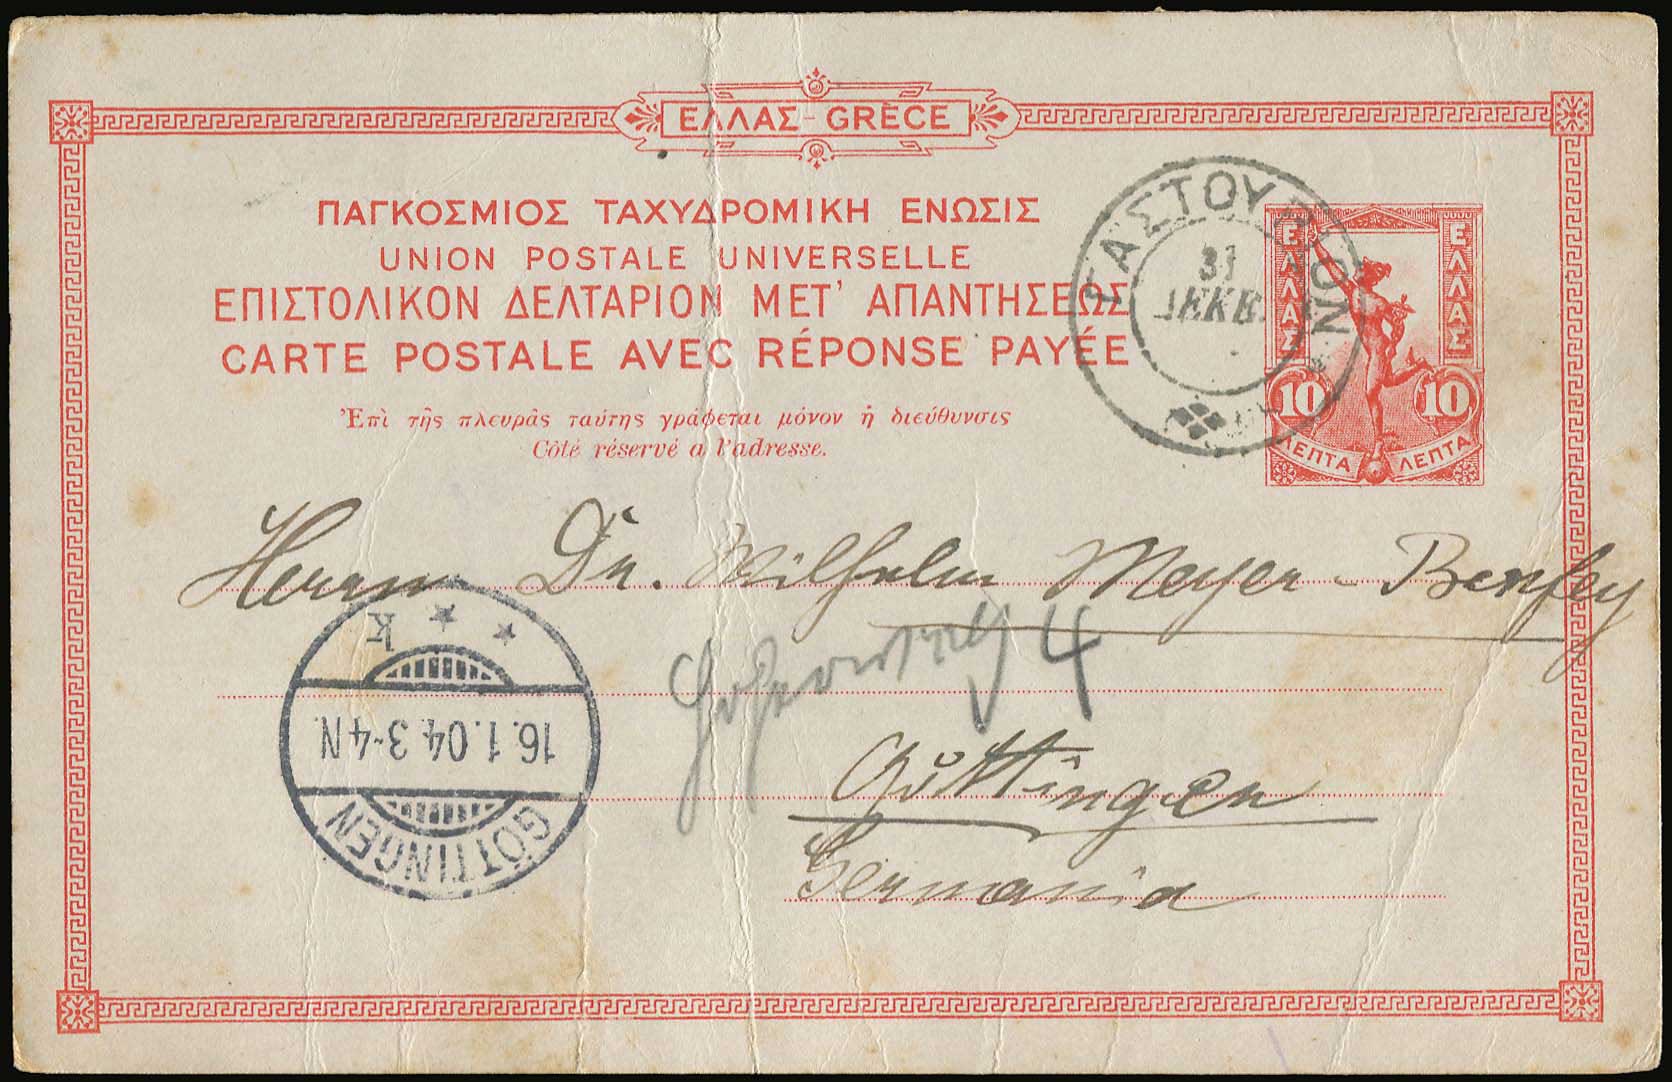 ΕΛΛΑΣ - GRÈCE
ΠΑΓΚΟΣΜΙΟΣ ΤΑΧΥΔΡΟΜΙΚΗ ΕΝΩΣΙΣ
UNION POSTALE UNIVERSELLE
ΕΠΙΣΤΟΛΙΚΟΝ ΔΕΛΤΑΡΙΟΝ ΜΕΤ' ΑΠΑΝΤΗΣΕΩΣ
CARTE POSTALE AVEC RÉPONSE PAYÉE
Ἐπὶ τῆς πλευρᾶς ταύτης γράφεται μόνον ἡ διεύθυνσις
Côté réservé a l'adresse.
ΓΑΣΤΟΥΡΙΟΝ
31
ΔΕΚΒ.
ΕΛΛΑΣ
ΕΛΛΑΣ
10
10
ΛΕΠΤΑ
ΛΕΠΤΑ
Herrn Dr. Wilhelm Meyer-Benfey
4
Göttingen
Germania
GÖTTINGEN
16.1.04.3-4N.
* * * k